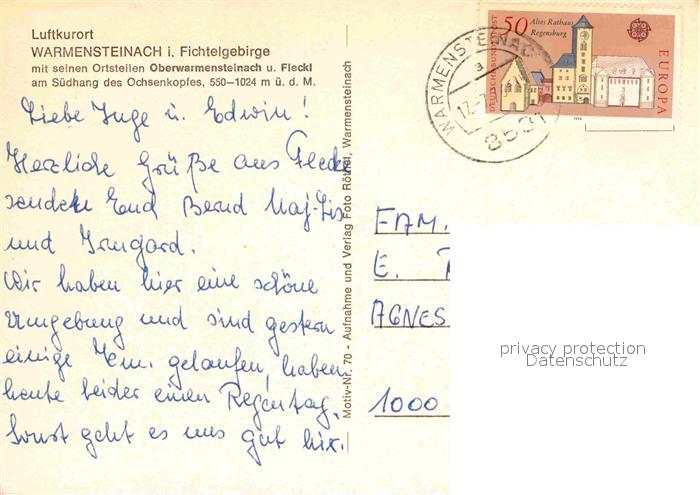 Luftkurort
WARMENSTEINACH i. Fichtelgebirge
mit seinen Ortsteilen Oberwarmensteinach u. Fleckl
am Südhang des Ochsenkopfes, 550–1024 m ü. d. M.
Liebe Inge u. Edwin!
Herzliche Grüße aus Fleckl
senden Euch Bernd Maj-Lis
und Irmgard.
Wir haben hier eine schöne
Umgebung und sind gestern
einige Km. gelaufen, haben
heute leider einen Regentag,
Sonst geht es uns gut hier.
Motiv-Nr. 70 - Aufnahme und Verlag Foto Röthel, Warmensteinach
WARMENSTEINACH
a
8581
50
Altes Rathaus
Regensburg
DEUTSCHE BUNDESPOST
EUROPA
1978
FAM.
E.
AGNES
1000
privacy protection
Datenschutz